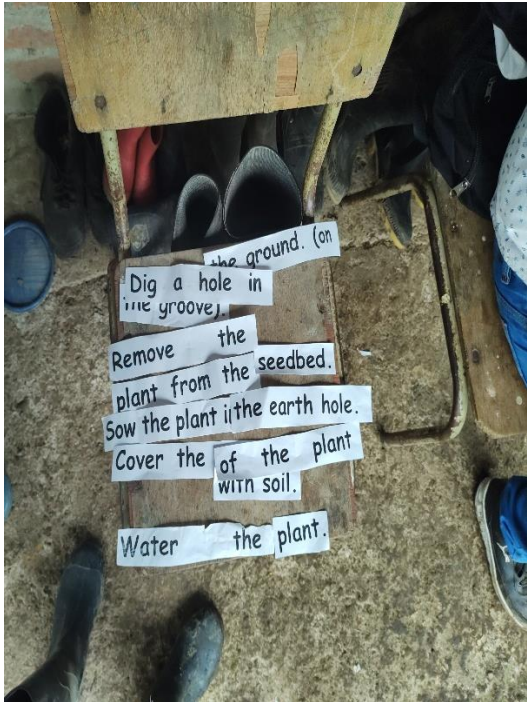 Dig a hole in the ground. (on
the groove).
Remove the
plant from the seedbed.
Sow the plant in the earth hole.
Cover the of the plant
with soil.
Water the plant.